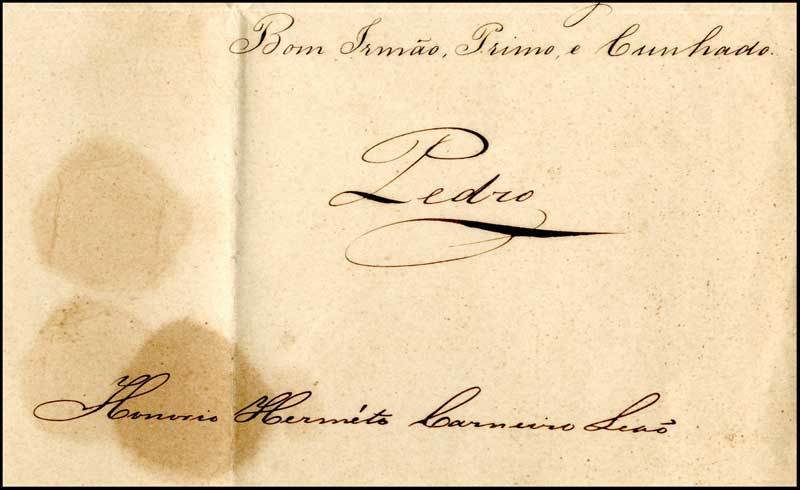 Bom Irmão, Primo, e Cunhado.
Pedro
Honorio Herméto Carneiro Leaõ